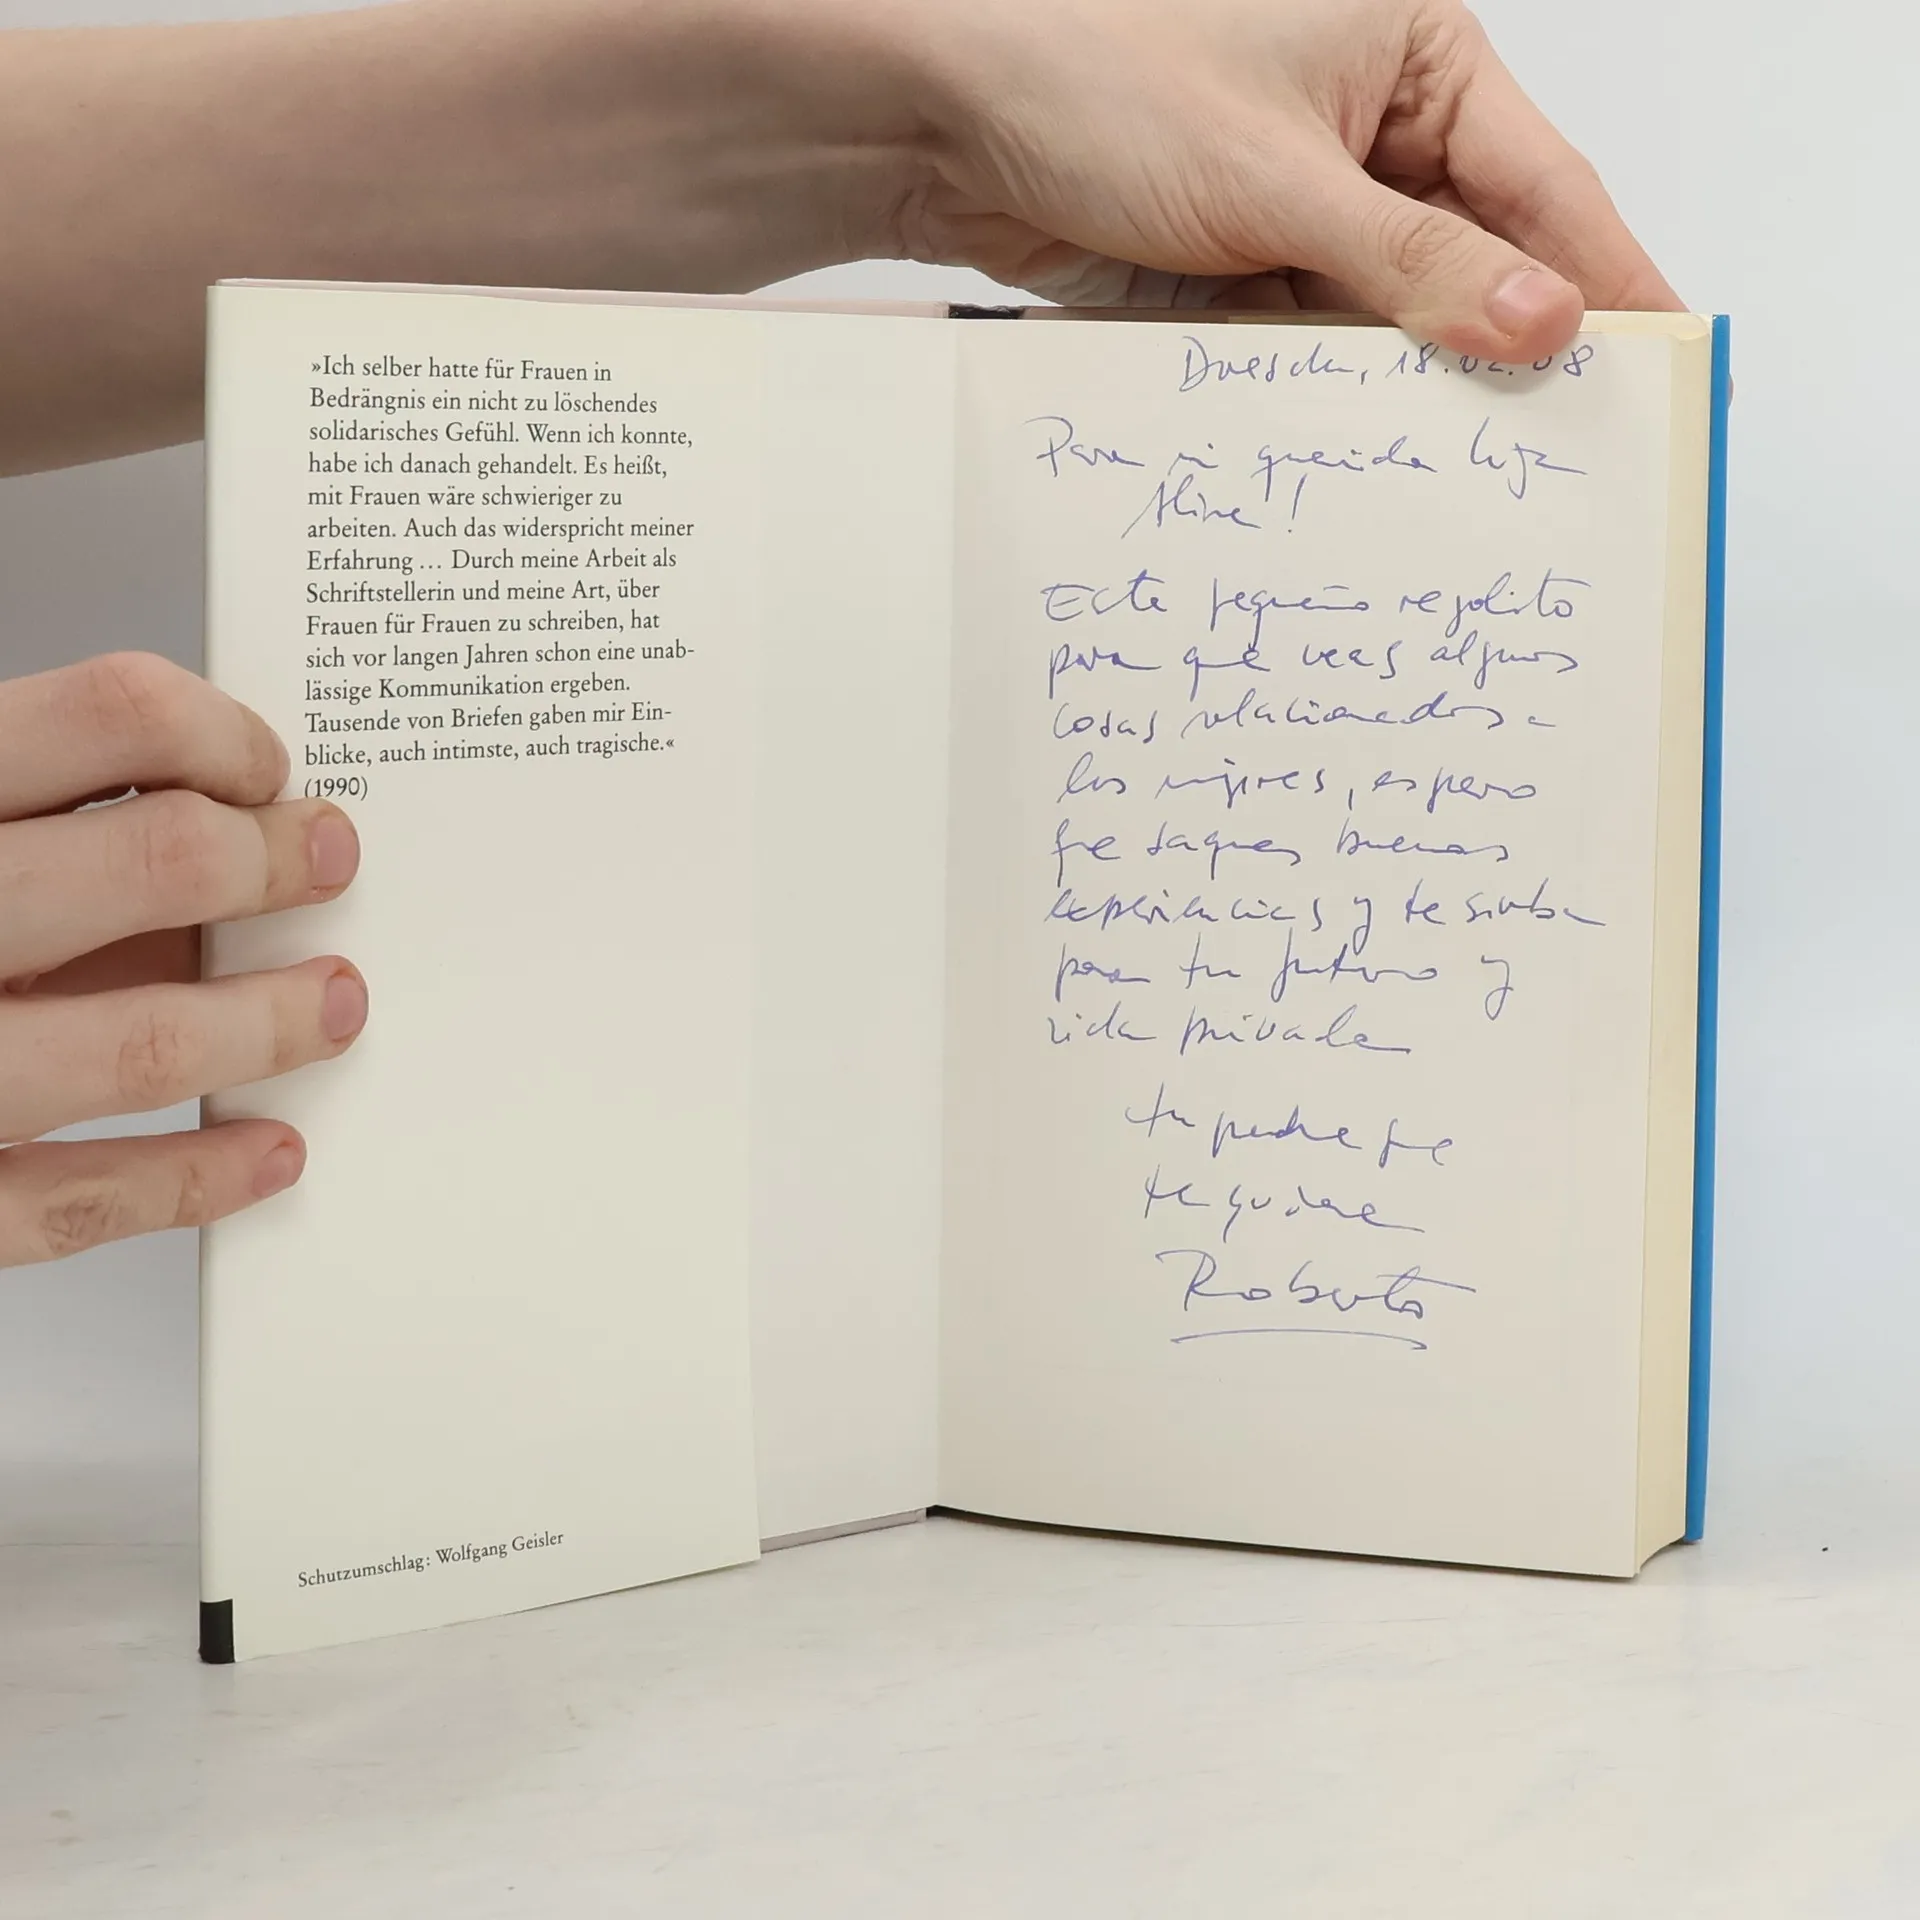 »Ich selber hatte für Frauen in
Bedrängnis ein nicht zu löschendes
solidarisches Gefühl. Wenn ich konnte,
habe ich danach gehandelt. Es heißt,
mit Frauen wäre schwieriger zu
arbeiten. Auch das widerspricht meiner
Erfahrung … Durch meine Arbeit als
Schriftstellerin und meine Art, über
Frauen für Frauen zu schreiben, hat
sich vor langen Jahren schon eine unab-
lässige Kommunikation ergeben.
Tausende von Briefen gaben mir Ein-
blicke, auch intimste, auch tragische.«
(1990)
Schutzumschlag: Wolfgang Geisler
Dresden, 18.02.08
Para mi querida hija
!
Este pequeño regalito
para que veas algunas
cosas relacionados a
las mujeres, espero
que saques buenas
experiencias y te sirva
para tu futuro y
vida privada
tu padre que
te quiere
Roberto